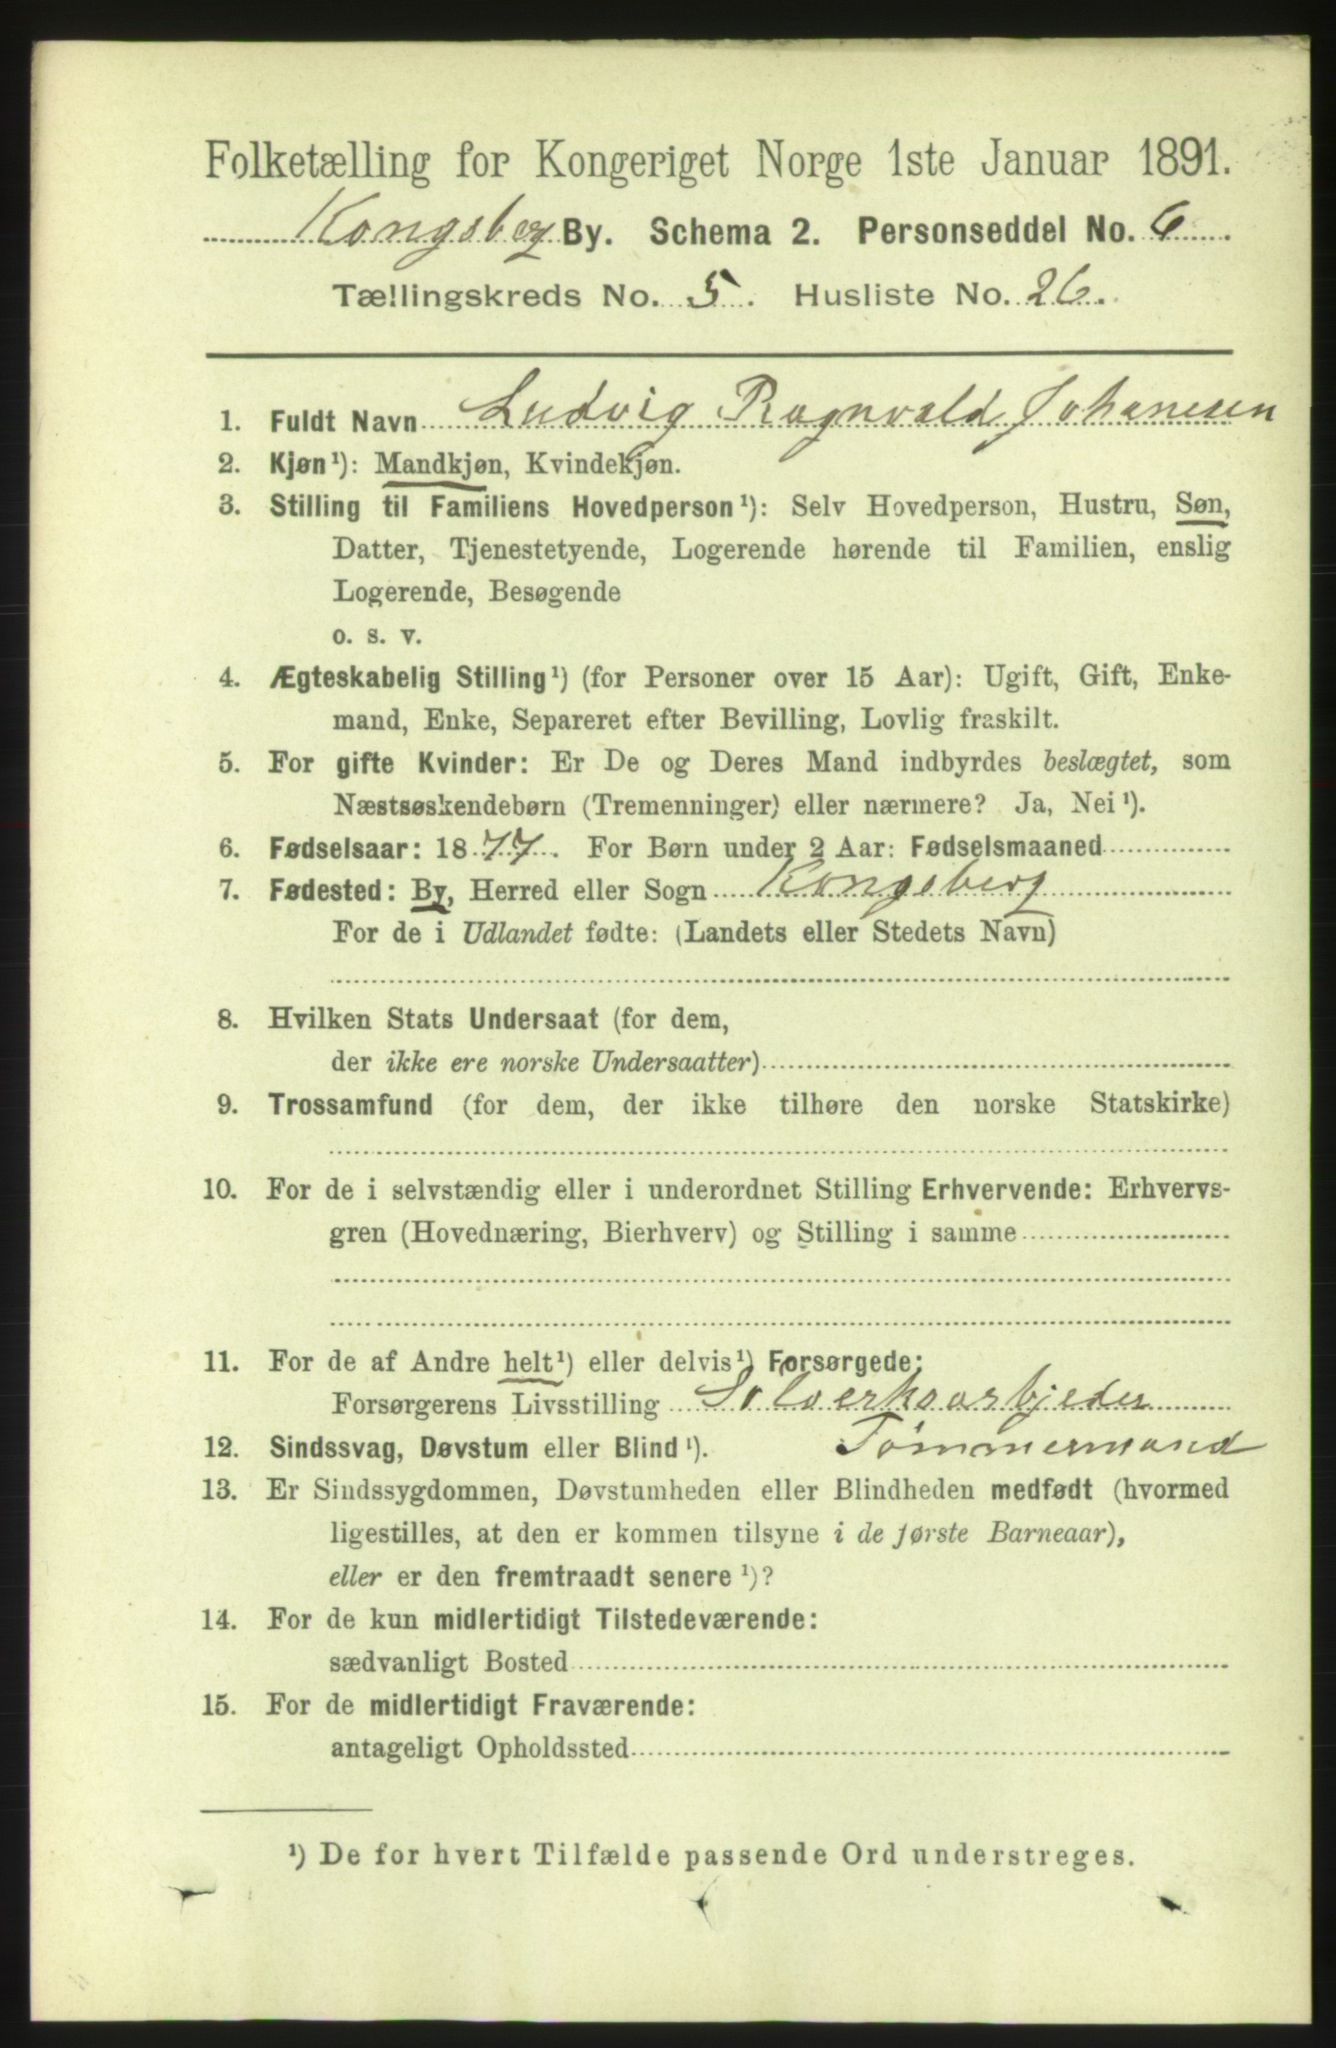 Folketælling for Kongeriget Norge 1ste Januar 1891.
Kongsberg By. Schema 2. Personseddel No. 6.
Tællingskreds No. 5. Husliste No. 26.
1. Fuldt Navn Ludvig Ragnvald Johanesen
2. Kjøn¹): Mandkjøn, Kvindekjøn.
3. Stilling til Familiens Hovedperson¹): Selv Hovedperson, Hustru, Søn,
Datter, Tjenestetyende, Logerende hørende til Familien, enslig
Logerende, Besøgende
o. s. v.
4. Ægteskabelig Stilling¹) (for Personer over 15 Aar): Ugift, Gift, Enke-
mand, Enke, Separeret efter Bevilling, Lovlig fraskilt.
5. For gifte Kvinder: Er De og Deres Mand indbyrdes beslægtet, som
Næstsøskendebørn (Tremenninger) eller nærmere? Ja, Nei¹).
6. Fødselsaar: 1877. For Børn under 2 Aar: Fødselsmaaned
7. Fødested: By, Herred eller Sogn Kongsberg
For de i Udlandet fødte: (Landets eller Stedets Navn)
8. Hvilken Stats Undersaat (for dem,
der ikke ere norske Undersaatter)
9. Trossamfund (for dem, der ikke tilhøre den norske Statskirke)
10. For de i selvstændig eller i underordnet Stilling Erhvervende: Erhvervs-
gren (Hovednæring, Bierhverv) og Stilling i samme
11. For de af Andre helt¹) eller delvis¹) Forsørgede:
Forsørgerens Livsstilling Sølverksarbjeder
12. Sindssvag, Døvstum eller Blind¹). Tømmermand
13. Er Sindssygdommen, Døvstumheden eller Blindheden medfødt (hvormed
ligestilles, at den er kommen tilsyne i de første Barneaar),
eller er den fremtraadt senere¹)?
14. For de kun midlertidigt Tilstedeværende:
sædvanligt Bosted
15. For de midlertidigt Fraværende:
antageligt Opholdssted
¹) De for hvert Tilfælde passende Ord understreges.